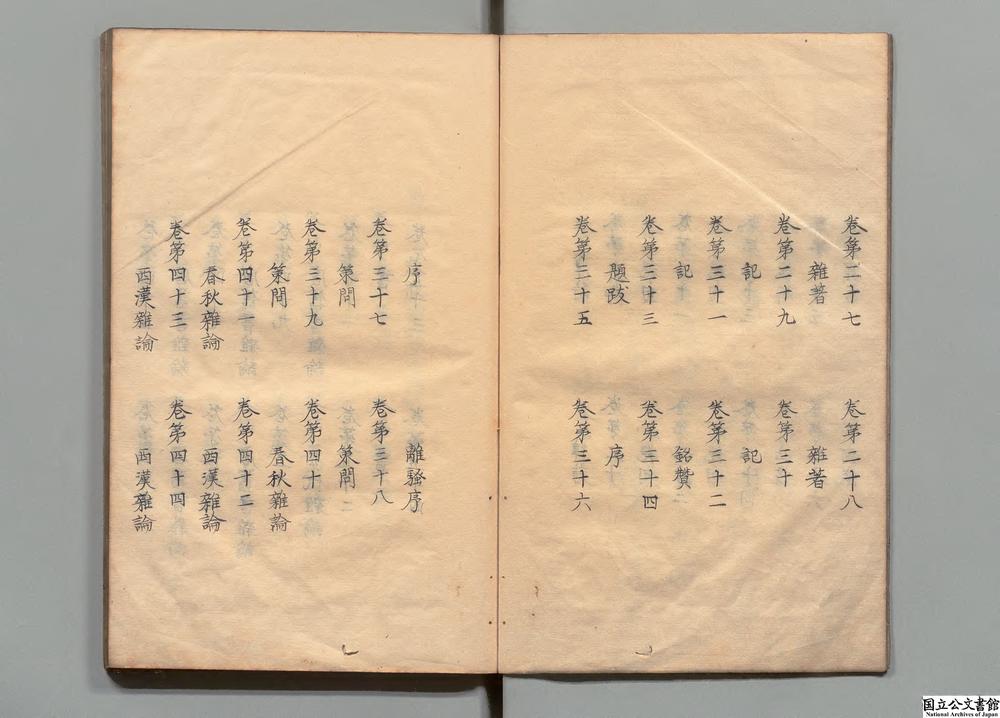 卷第二十七　卷第二十八
雜著　雜著
卷第二十九　卷第三十
記　記
卷第三十一　卷第三十二
記　銘贊
卷第三十三　卷第三十四
題跋　序
卷第三十五　卷第三十六
序　離騷序
卷第三十七　卷第三十八
策問　策問
卷第三十九　卷第四十
策問　春秋雜論
卷第四十一　卷第四十二
春秋雜論　西漢雜論
卷第四十三　卷第四十四
西漢雜論　西漢雜論
国立公文書館
National Archives of Japan